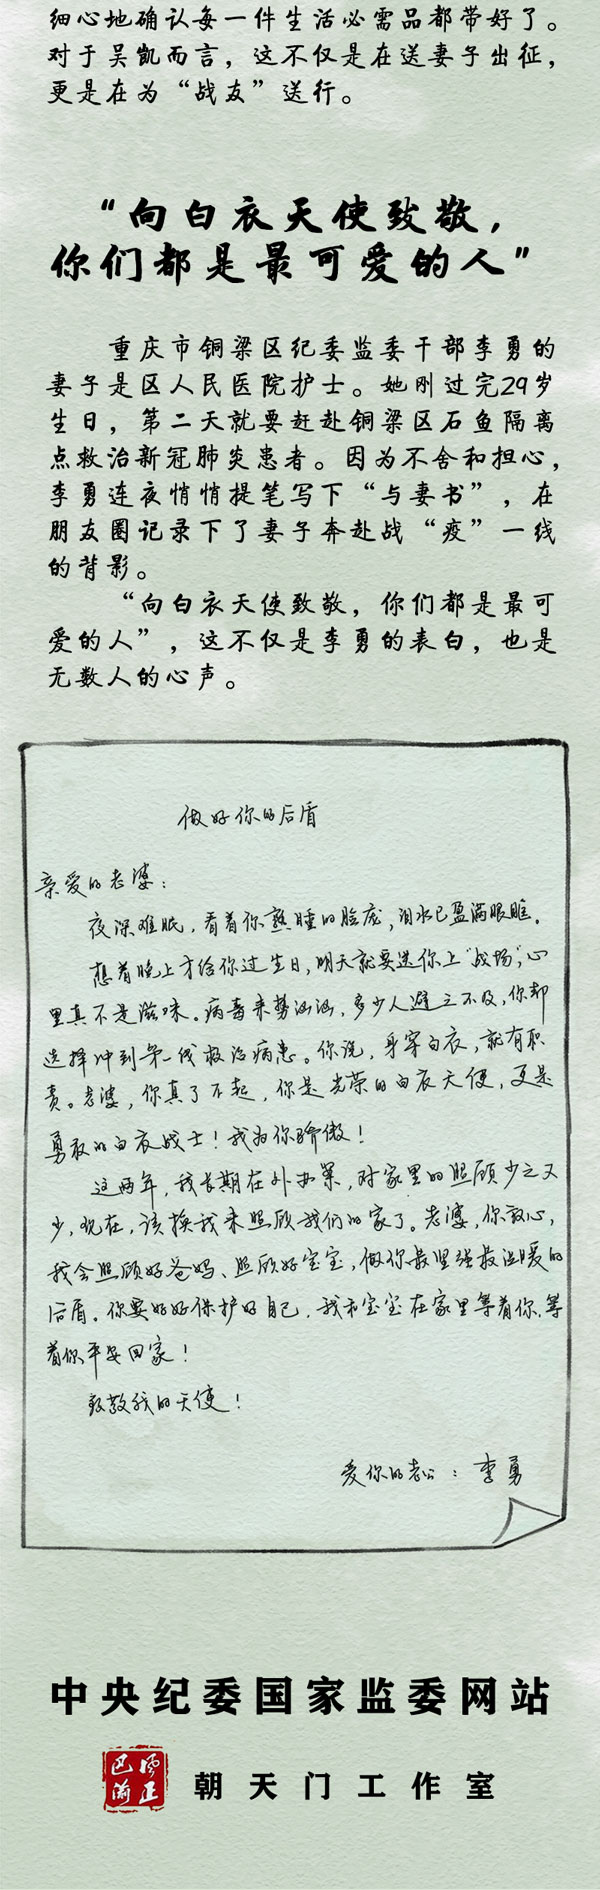 细心地确认每一件生活必需品都带好了。
对于吴凯而言，这不仅是在送妻子出征，
更是在为“战友”送行。
“向白衣天使致敬，
你们都是最可爱的人”
重庆市铜梁区纪委监委干部李勇的
妻子是区人民医院护士。她刚过完29岁
生日，第二天就要赶赴铜梁区石鱼隔离
点救治新冠肺炎患者。因为不舍和担心，
李勇连夜悄悄提笔写下“与妻书”，在
朋友圈记录下了妻子奔赴战“疫”一线
的背影。
“向白衣天使致敬，你们都是最可
爱的人”，这不仅是李勇的表白，也是
无数人的心声。
做好你的后盾
亲爱的老婆：
夜深难眠，看着你熟睡的脸庞，泪水已盈满眼眶。
想着晚上才给你过生日，明天就要送你上“战场”，心
里真不是滋味。病毒来势汹汹，多少人避之不及，你却
选择冲到第一线救治病患。你说，身穿白衣，就有职
责。老婆，你真了不起，你是光荣的白衣天使，更是
勇敢的白衣战士！我为你骄傲！
这两年，我长期在外办案，对家里的照顾少之又
少，现在，该换我来照顾我们的家了。老婆，你放心，
我会照顾好爸妈、照顾好宝宝，做你最坚强最温暖的
后盾。你要好好保护好自己，我和宝宝在家里等着你，等
着你平安回家！
致敬我的天使！
爱你的老公：李勇
中央纪委国家监委网站
风正
巴渝
朝天门工作室